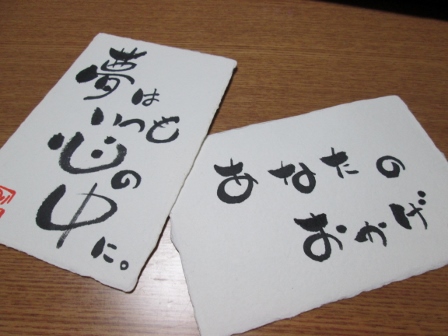 夢は
いつも
心の
中に。
あなたの
おかげ